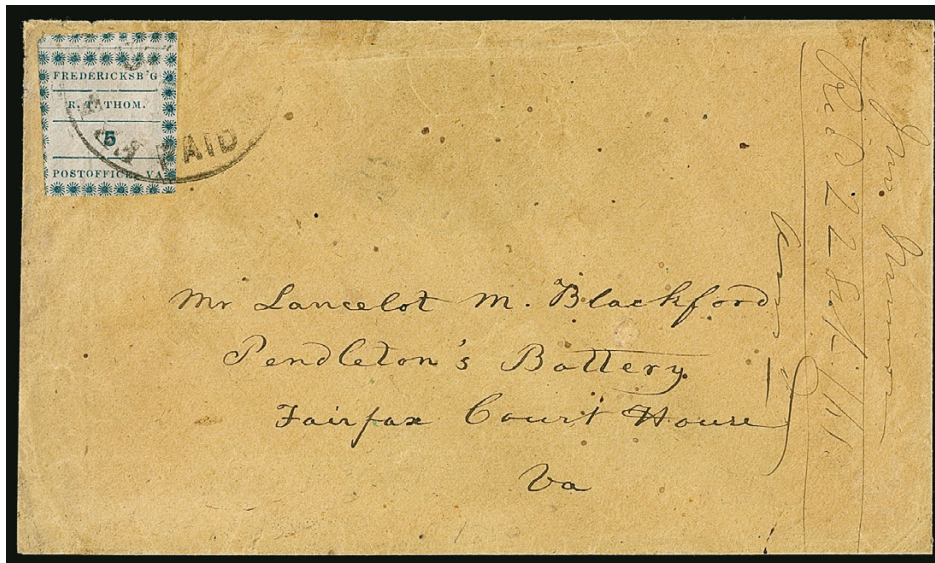 FREDERICKSB'G
R. T. THOM.
5
POSTOFFICE, VA
PAID
Mr Lancelot M. Blackford
Pendleton's Battery
Fairfax Court House
Va
22